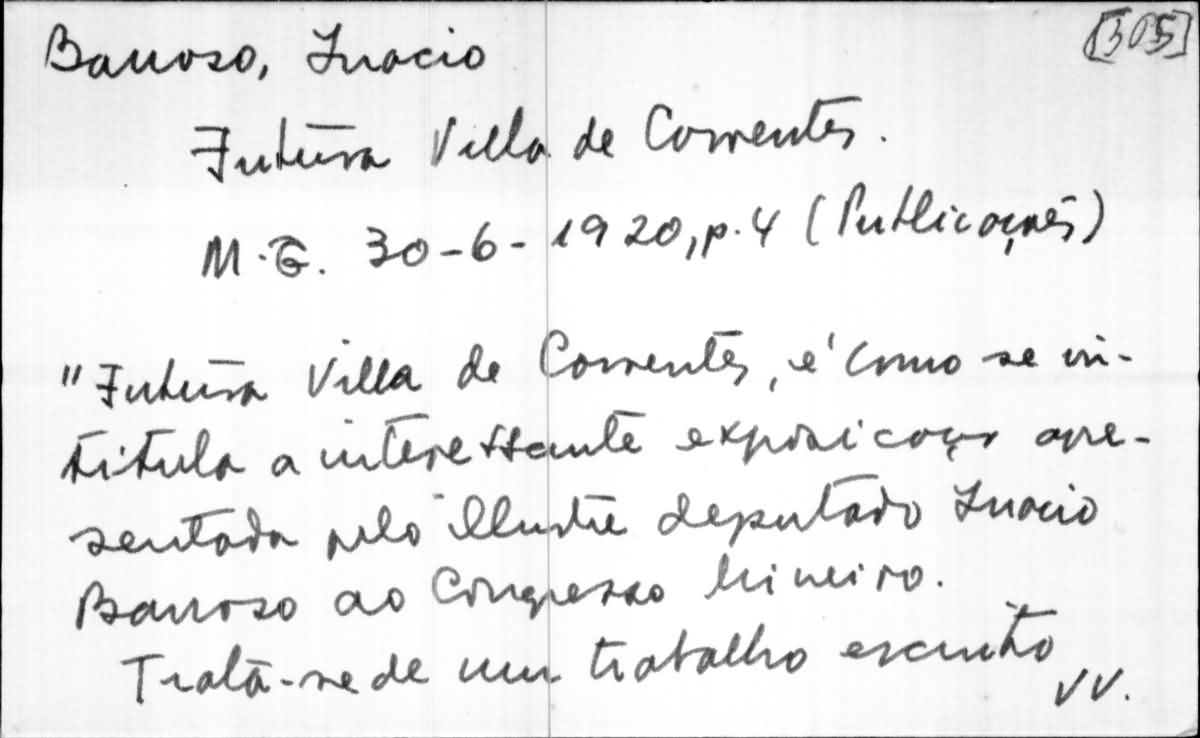 [305]
Barroso, Inacio
Futura Villa de Correntes.
M.G. 30-6-1920, p. 4 (Publicações)
"Futura Villa de Correntes, é como se in-
titula a interessante exposicação apre-
sentada pelo illustre deputado Inacio
Barroso ao Congresso Mineiro.
Trata-se de um trabalho escrito
VV.